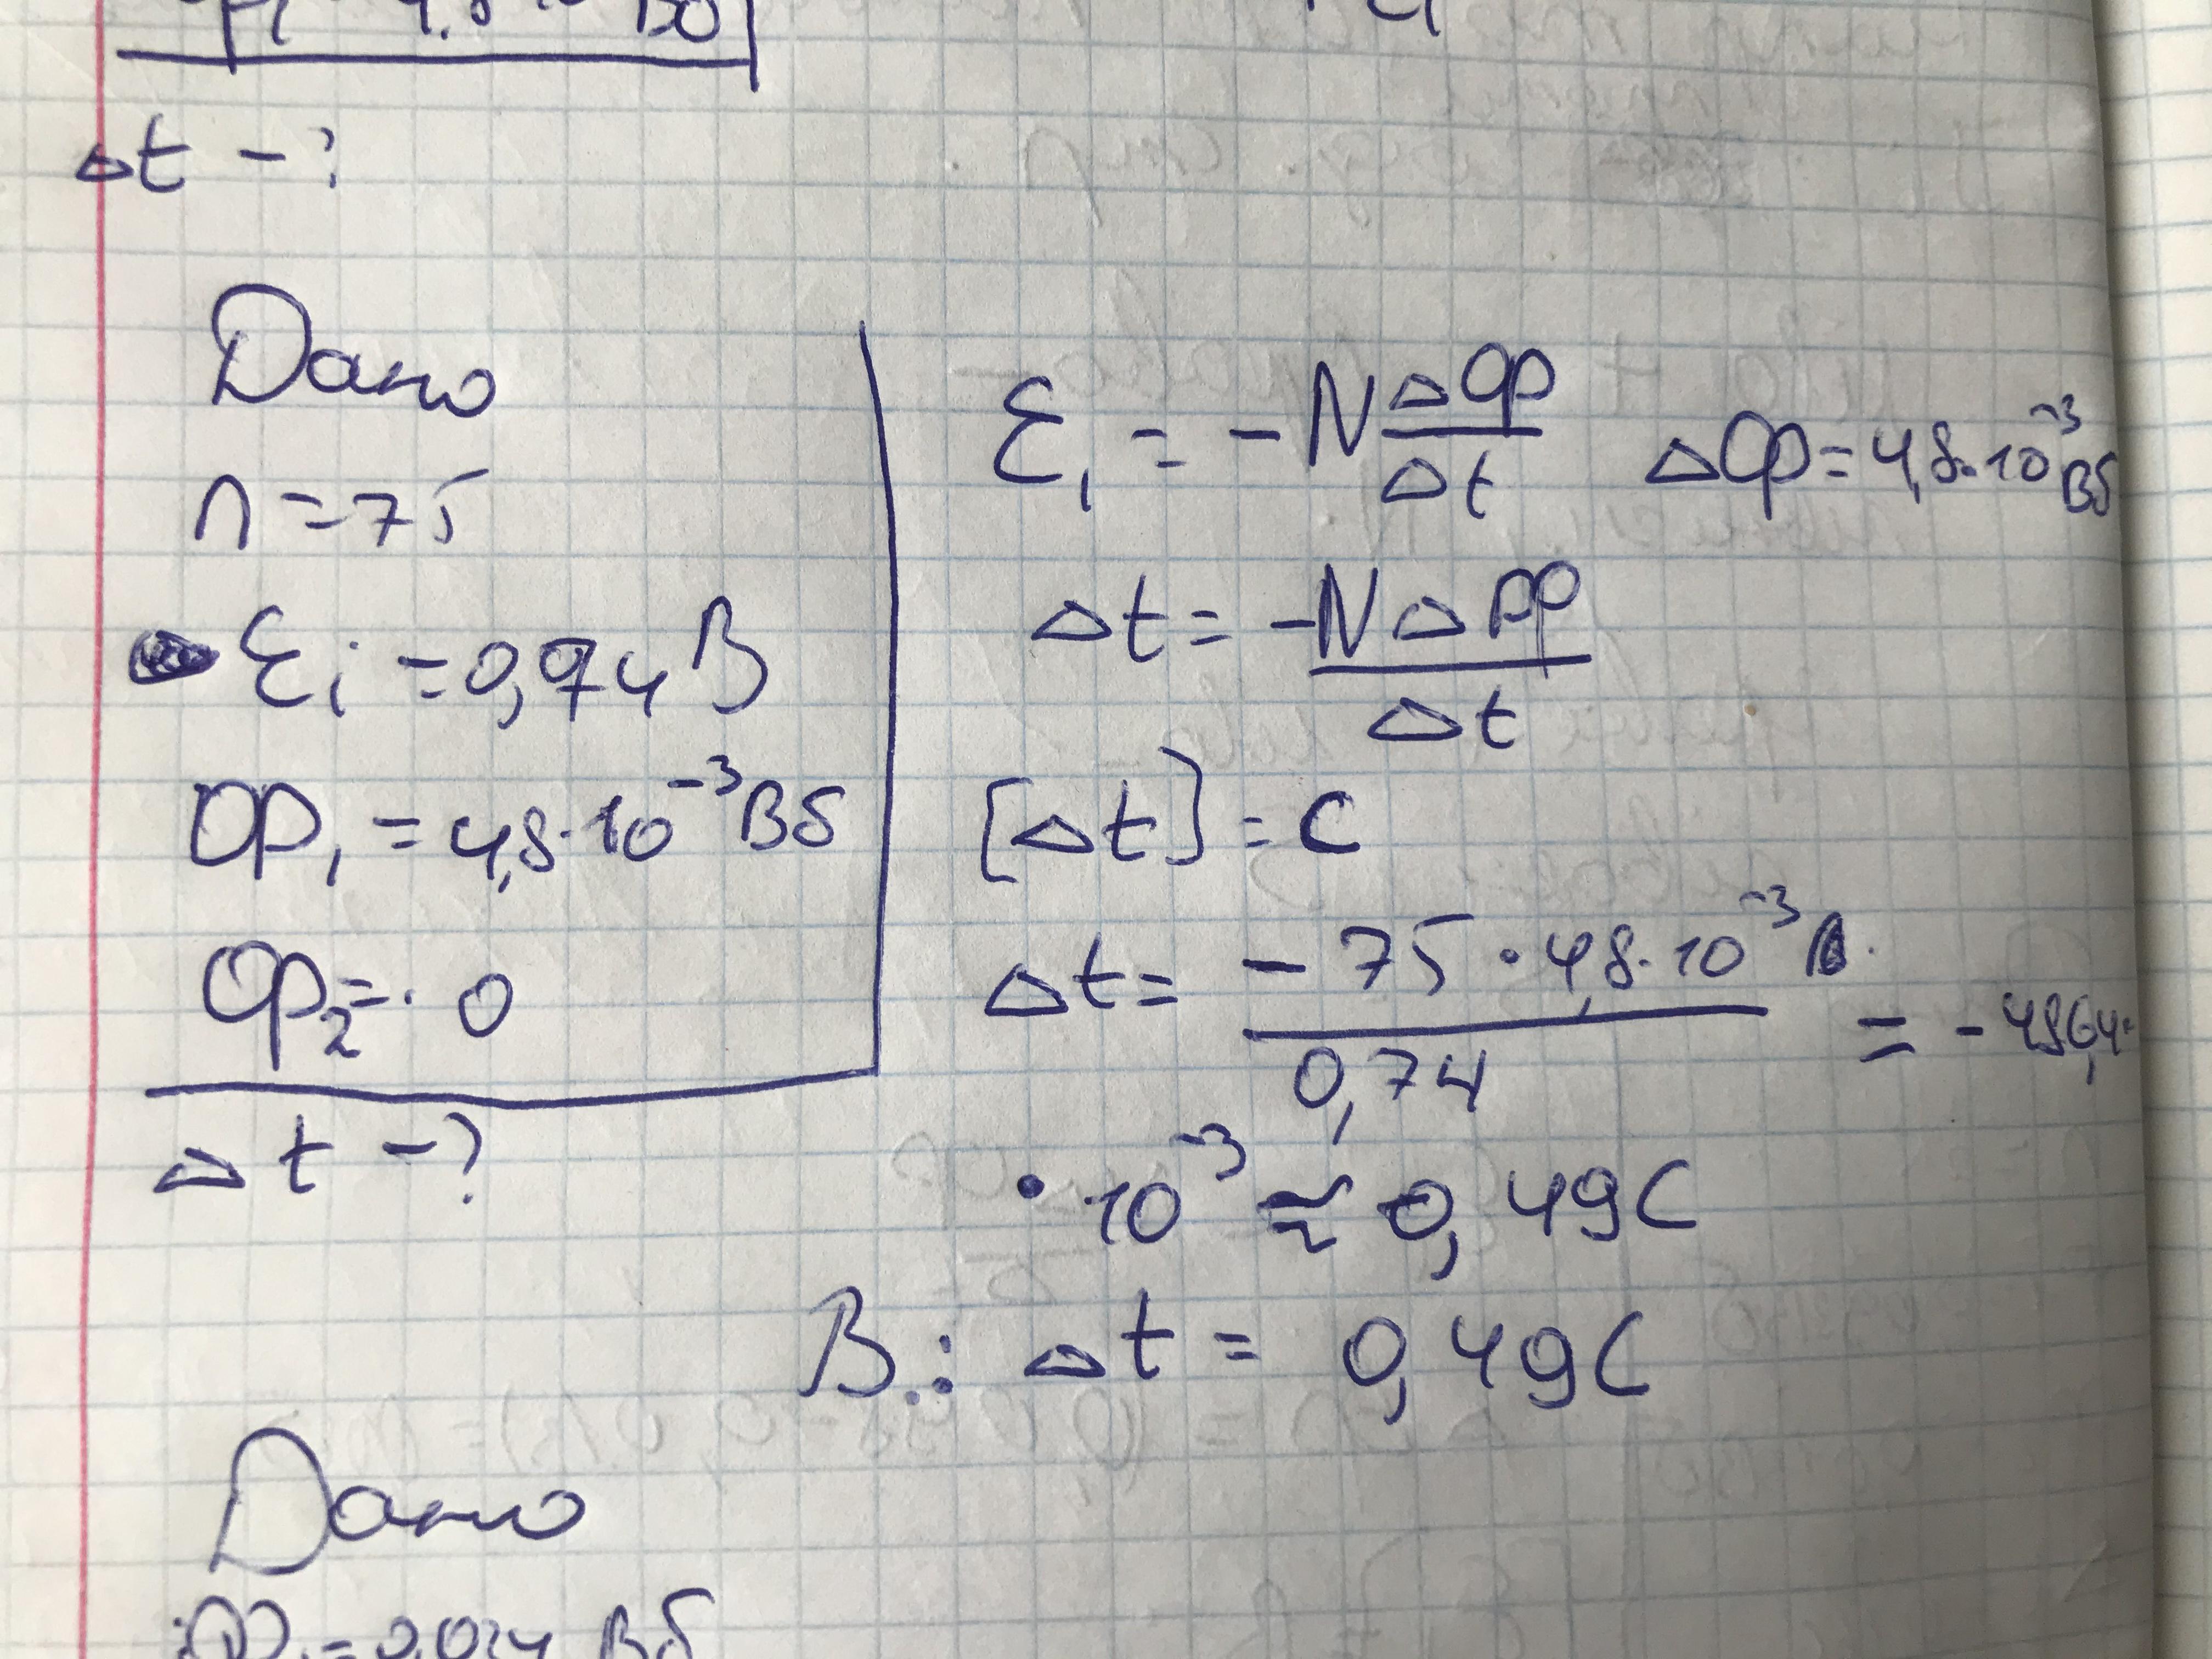 Δt - ?
Дано
n = 75
Ɛi = 0,74 В
Ф₁ = 4,8·10⁻³ Вб
Ф₂ = 0
Δt - ?
Ɛi = -N ΔФ/Δt ΔФ = 4,8·10⁻³ Вб
Δt = -NΔФ/Δt
[Δt] = С
Δt = -75·4,8·10⁻³/0,74 = -486,4·
·10⁻³ ≈ 0,49С
В.: Δt = 0,49С
Дано